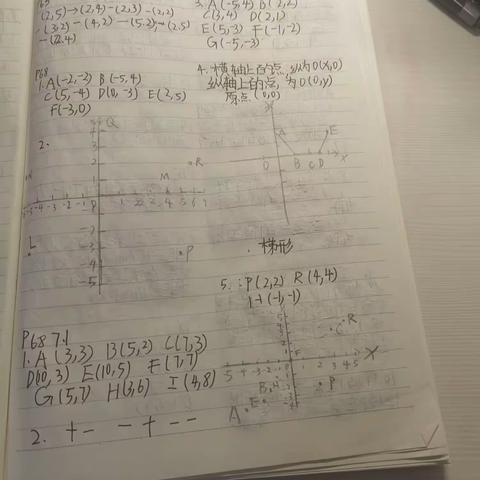 (2,5)→(2,4)-(2,3)-(2,2)
-(3,2)-(4,2)-(5,2)-(2,5)
P68
1. A(-2,-3) B(-5,4)
C(5,-4) D(0,-3) E(2,5)
F(-3,0)
2.
Q
R
M
L
P
P68 7.1
1. A(3,3) B(5,2) C(7,3)
D(10,3) E(10,5) F(7,7)
G(5,7) H(3,6) I(4,8)
2. +- -+ --
3. A(-5,4) B(2,2)
C(3,4) D(2,1)
E(5,-3) F(-1,-2)
G(-5,-3)
4. 横轴上的点,纵为0(X,0)
纵轴上的点,为0(0,y)
原点(0,0)
A
E
O B C D X
梯形
5. P(2,2) R(4,4)
H(-1,-1)
R
C
F
X
B H
P
A E